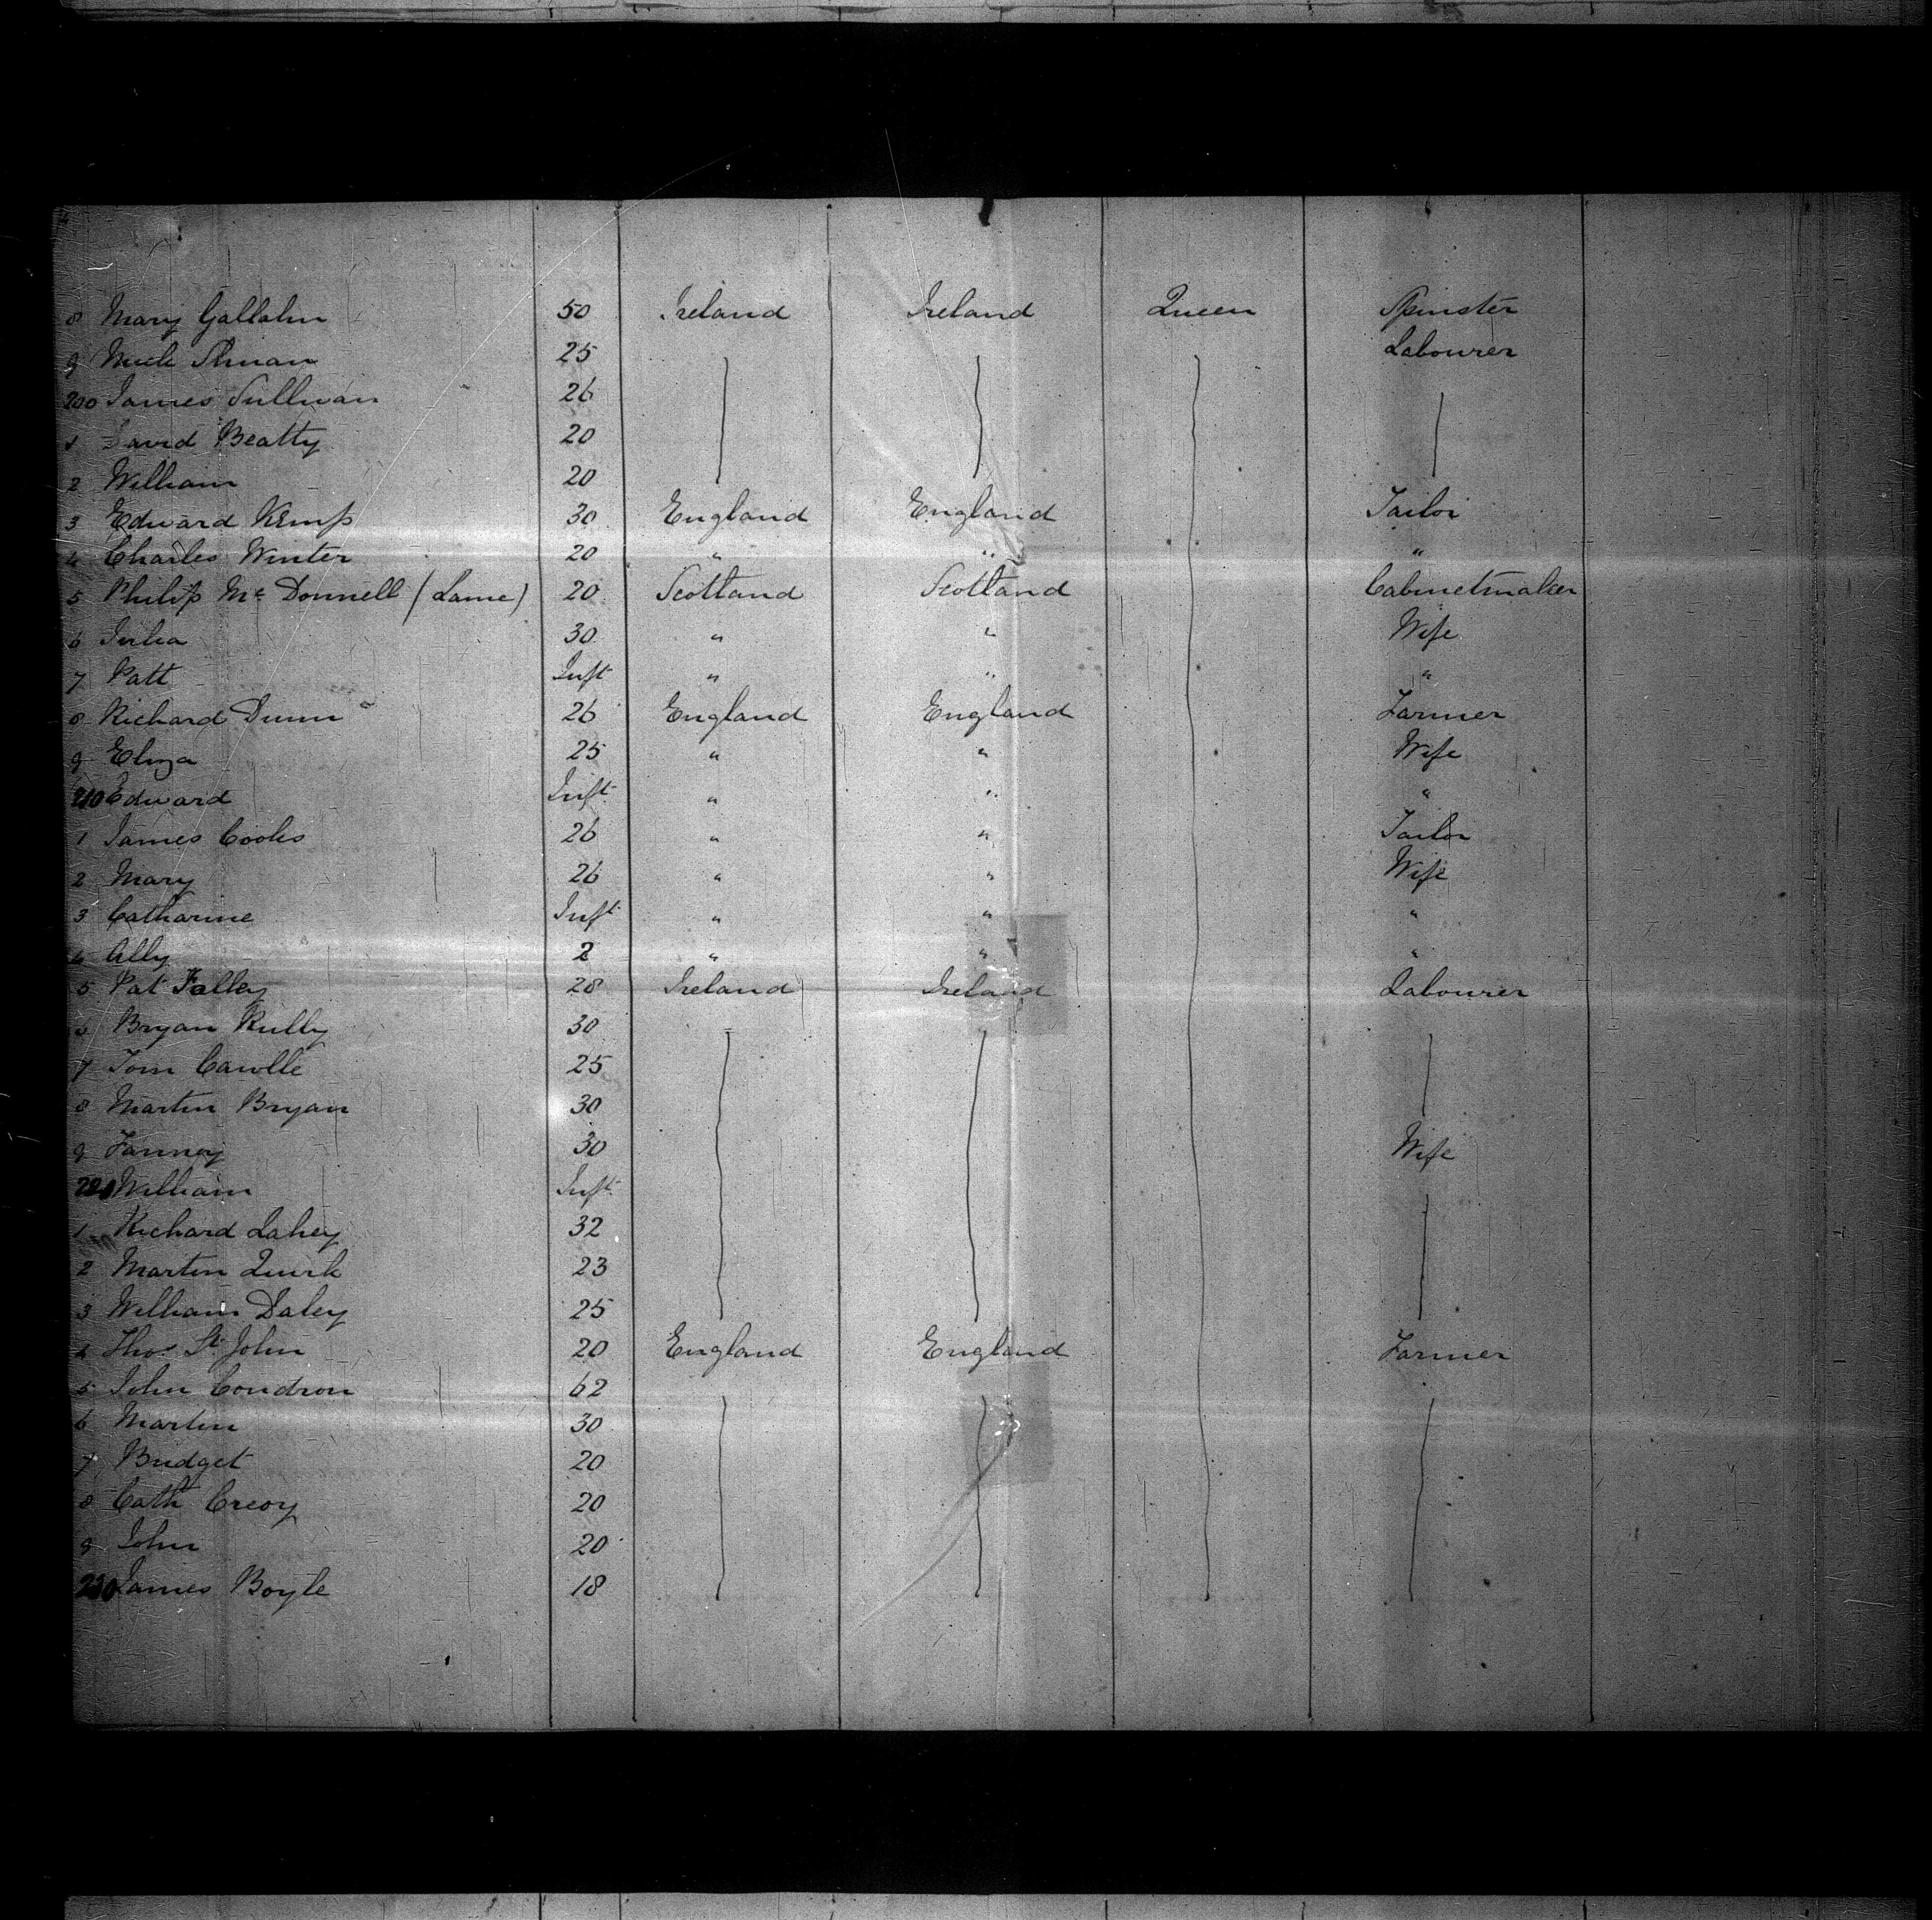 8 Mary Gallahn 50 Ireland Ireland Queen Spinster
9 Mick 25 Labourer
200 James Sullivan 26
1 David Beatty 20
2 William 20
3 Edward Kemp 30 England England Tailor
4 Charles Winter 20 " " "
5 Philip Mc Donnell (Lame) 20 Scotland Scotland Cabinetmaker
6 Julia 30 " " Wife
7 Patt Inft " " "
8 Richard Dunn 26 England England Farmer
9 Eliza 25 " " Wife
210 Edward Inft " " "
1 James Cooks 26 " " Tailor
2 Mary 26 " " Wife
3 Catharine Inft " " "
4 Ally 2 " " "
5 Pat Falley 28 Ireland Ireland Labourer
6 Bryan 30
7 Tom 25
8 Martin Bryan 30
9 Fanney 30 Wife
220 William Inft
1 Richard Lahey 32
2 Martin Quirk 23
3 William Daley 25
4 Thos St John 20 England England Farmer
5 John Condron 62
6 Martin 30
7 Bridget 20
8 Cath Creoy 20
9 John 20
230 James Boyle 18